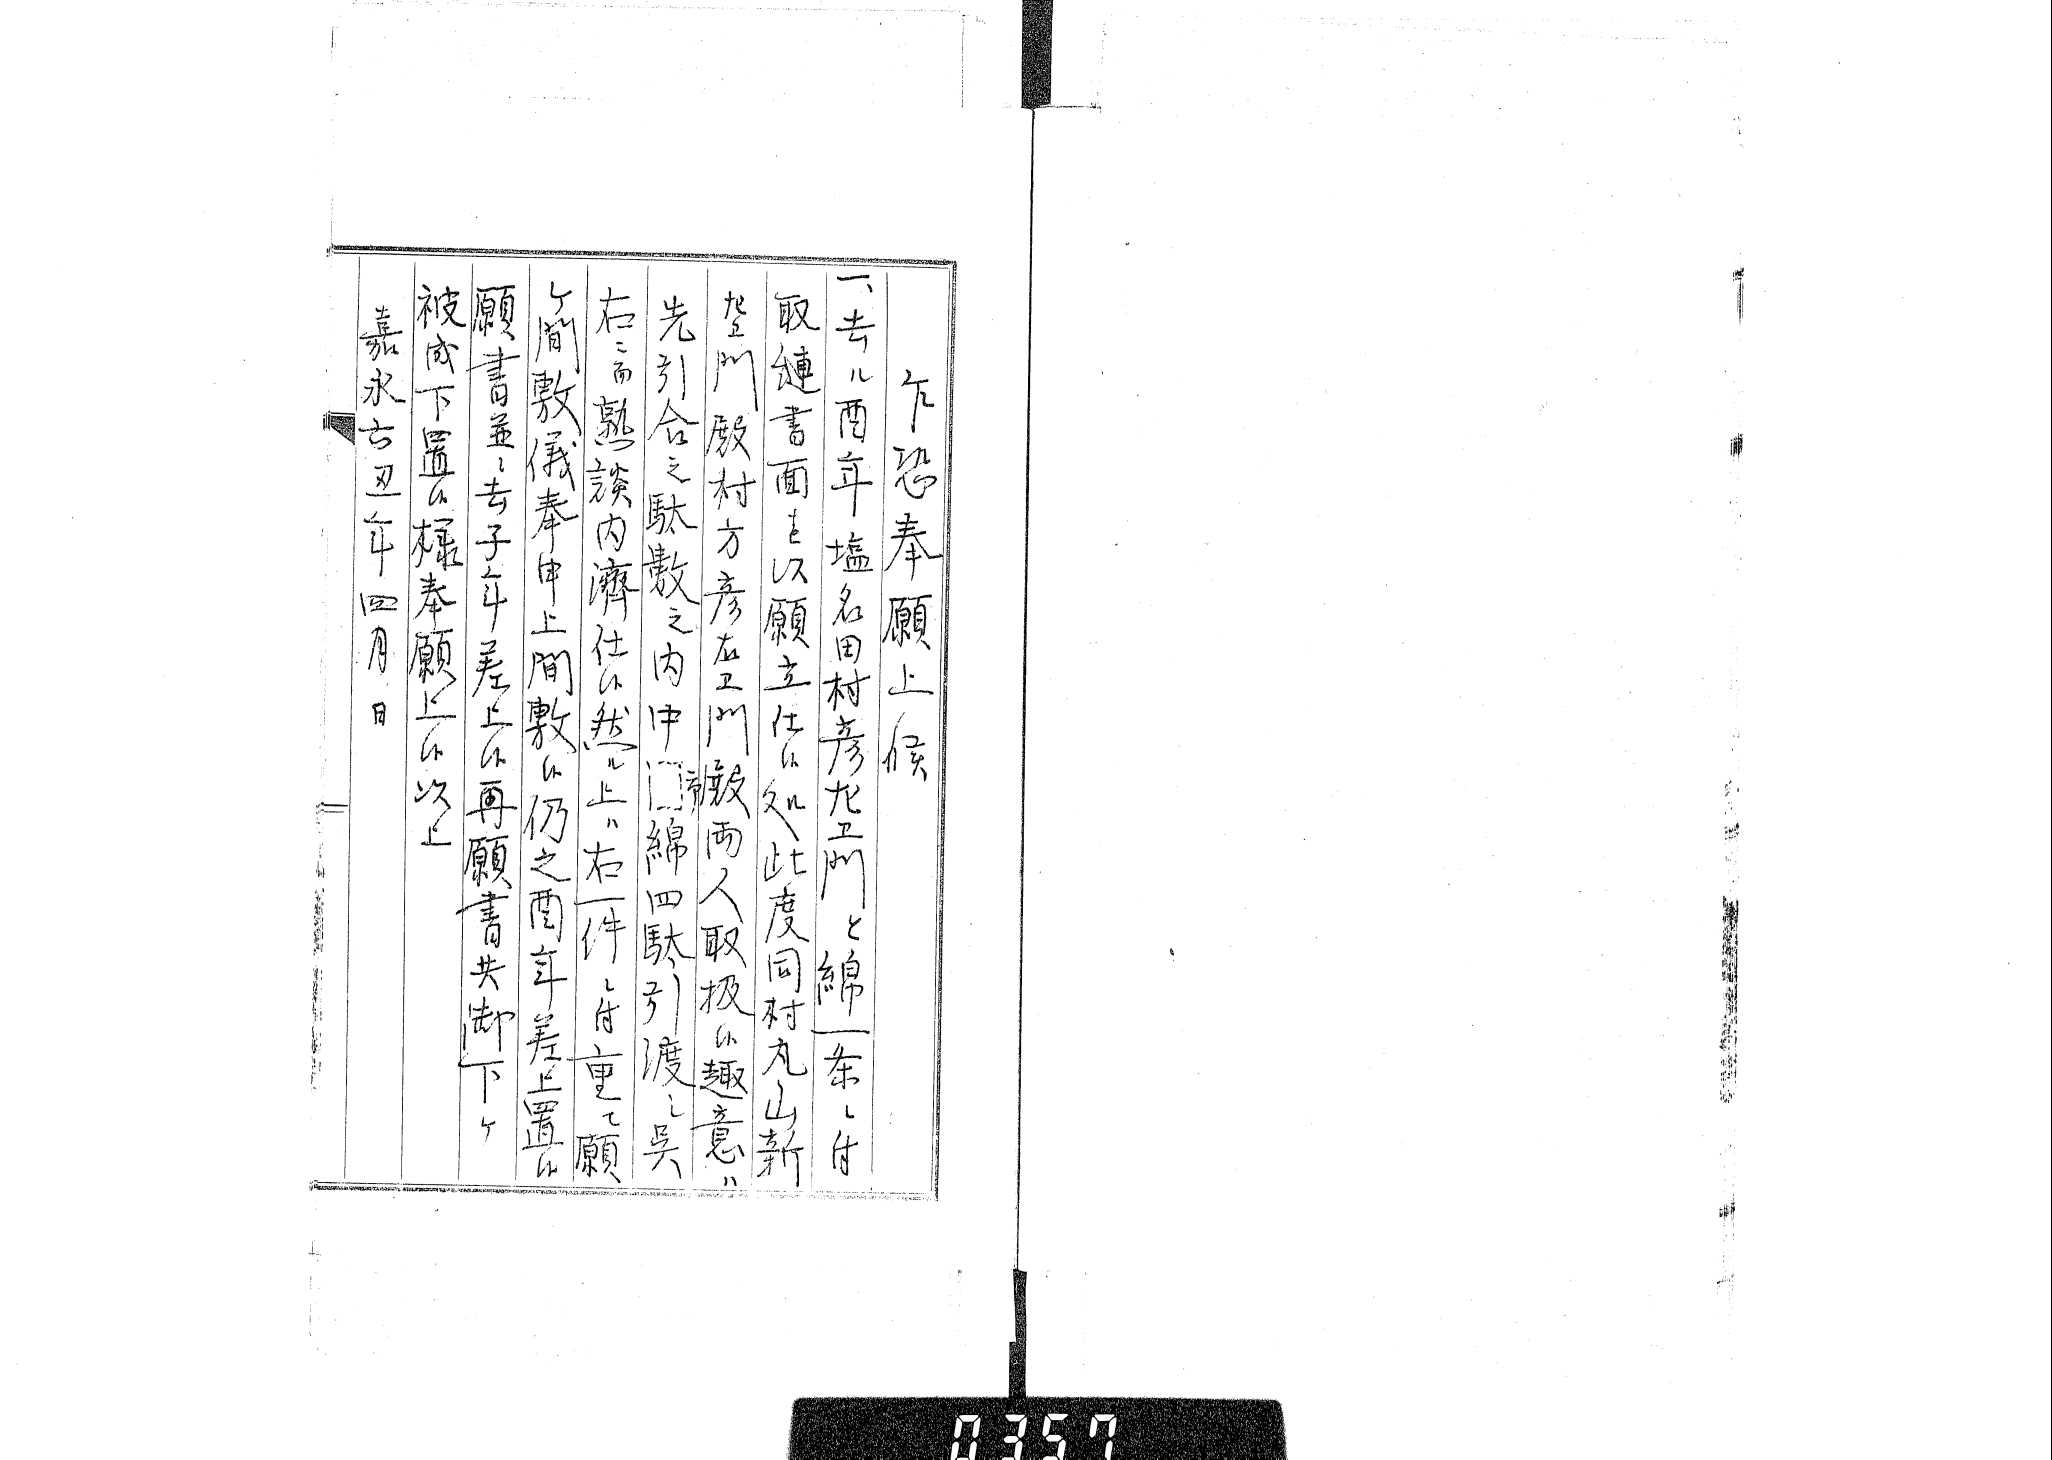 乍恐奉願上候
一、去ル酉年塩名田村彦左卫門と綿一条ニ付
取縺書面を以願立仕候処此度同村丸山新
左卫門殿村方彦右卫門殿両人取扱候趣意ハ
先引合之駄数之内中□綿四駄引渡シ呉
右ニ而熟談内済仕候然ル上ハ右一件ニ付重て願
ヶ間敷儀奉申上間敷候仍之酉年差上置候
願書並ニ去子年差上候再願書共御下ヶ
被成下置候様奉願上候以上
嘉永六丑年四月 日
0357